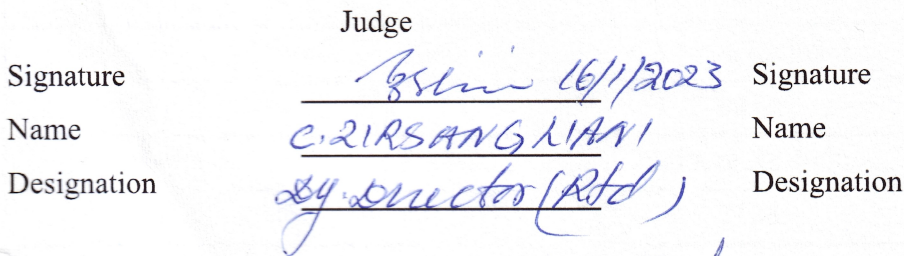 Judge
Signature 16/1/2023 Signature
Name C. ZIRSANGLIANI Name
Designation Dy. Director (Rtd) Designation